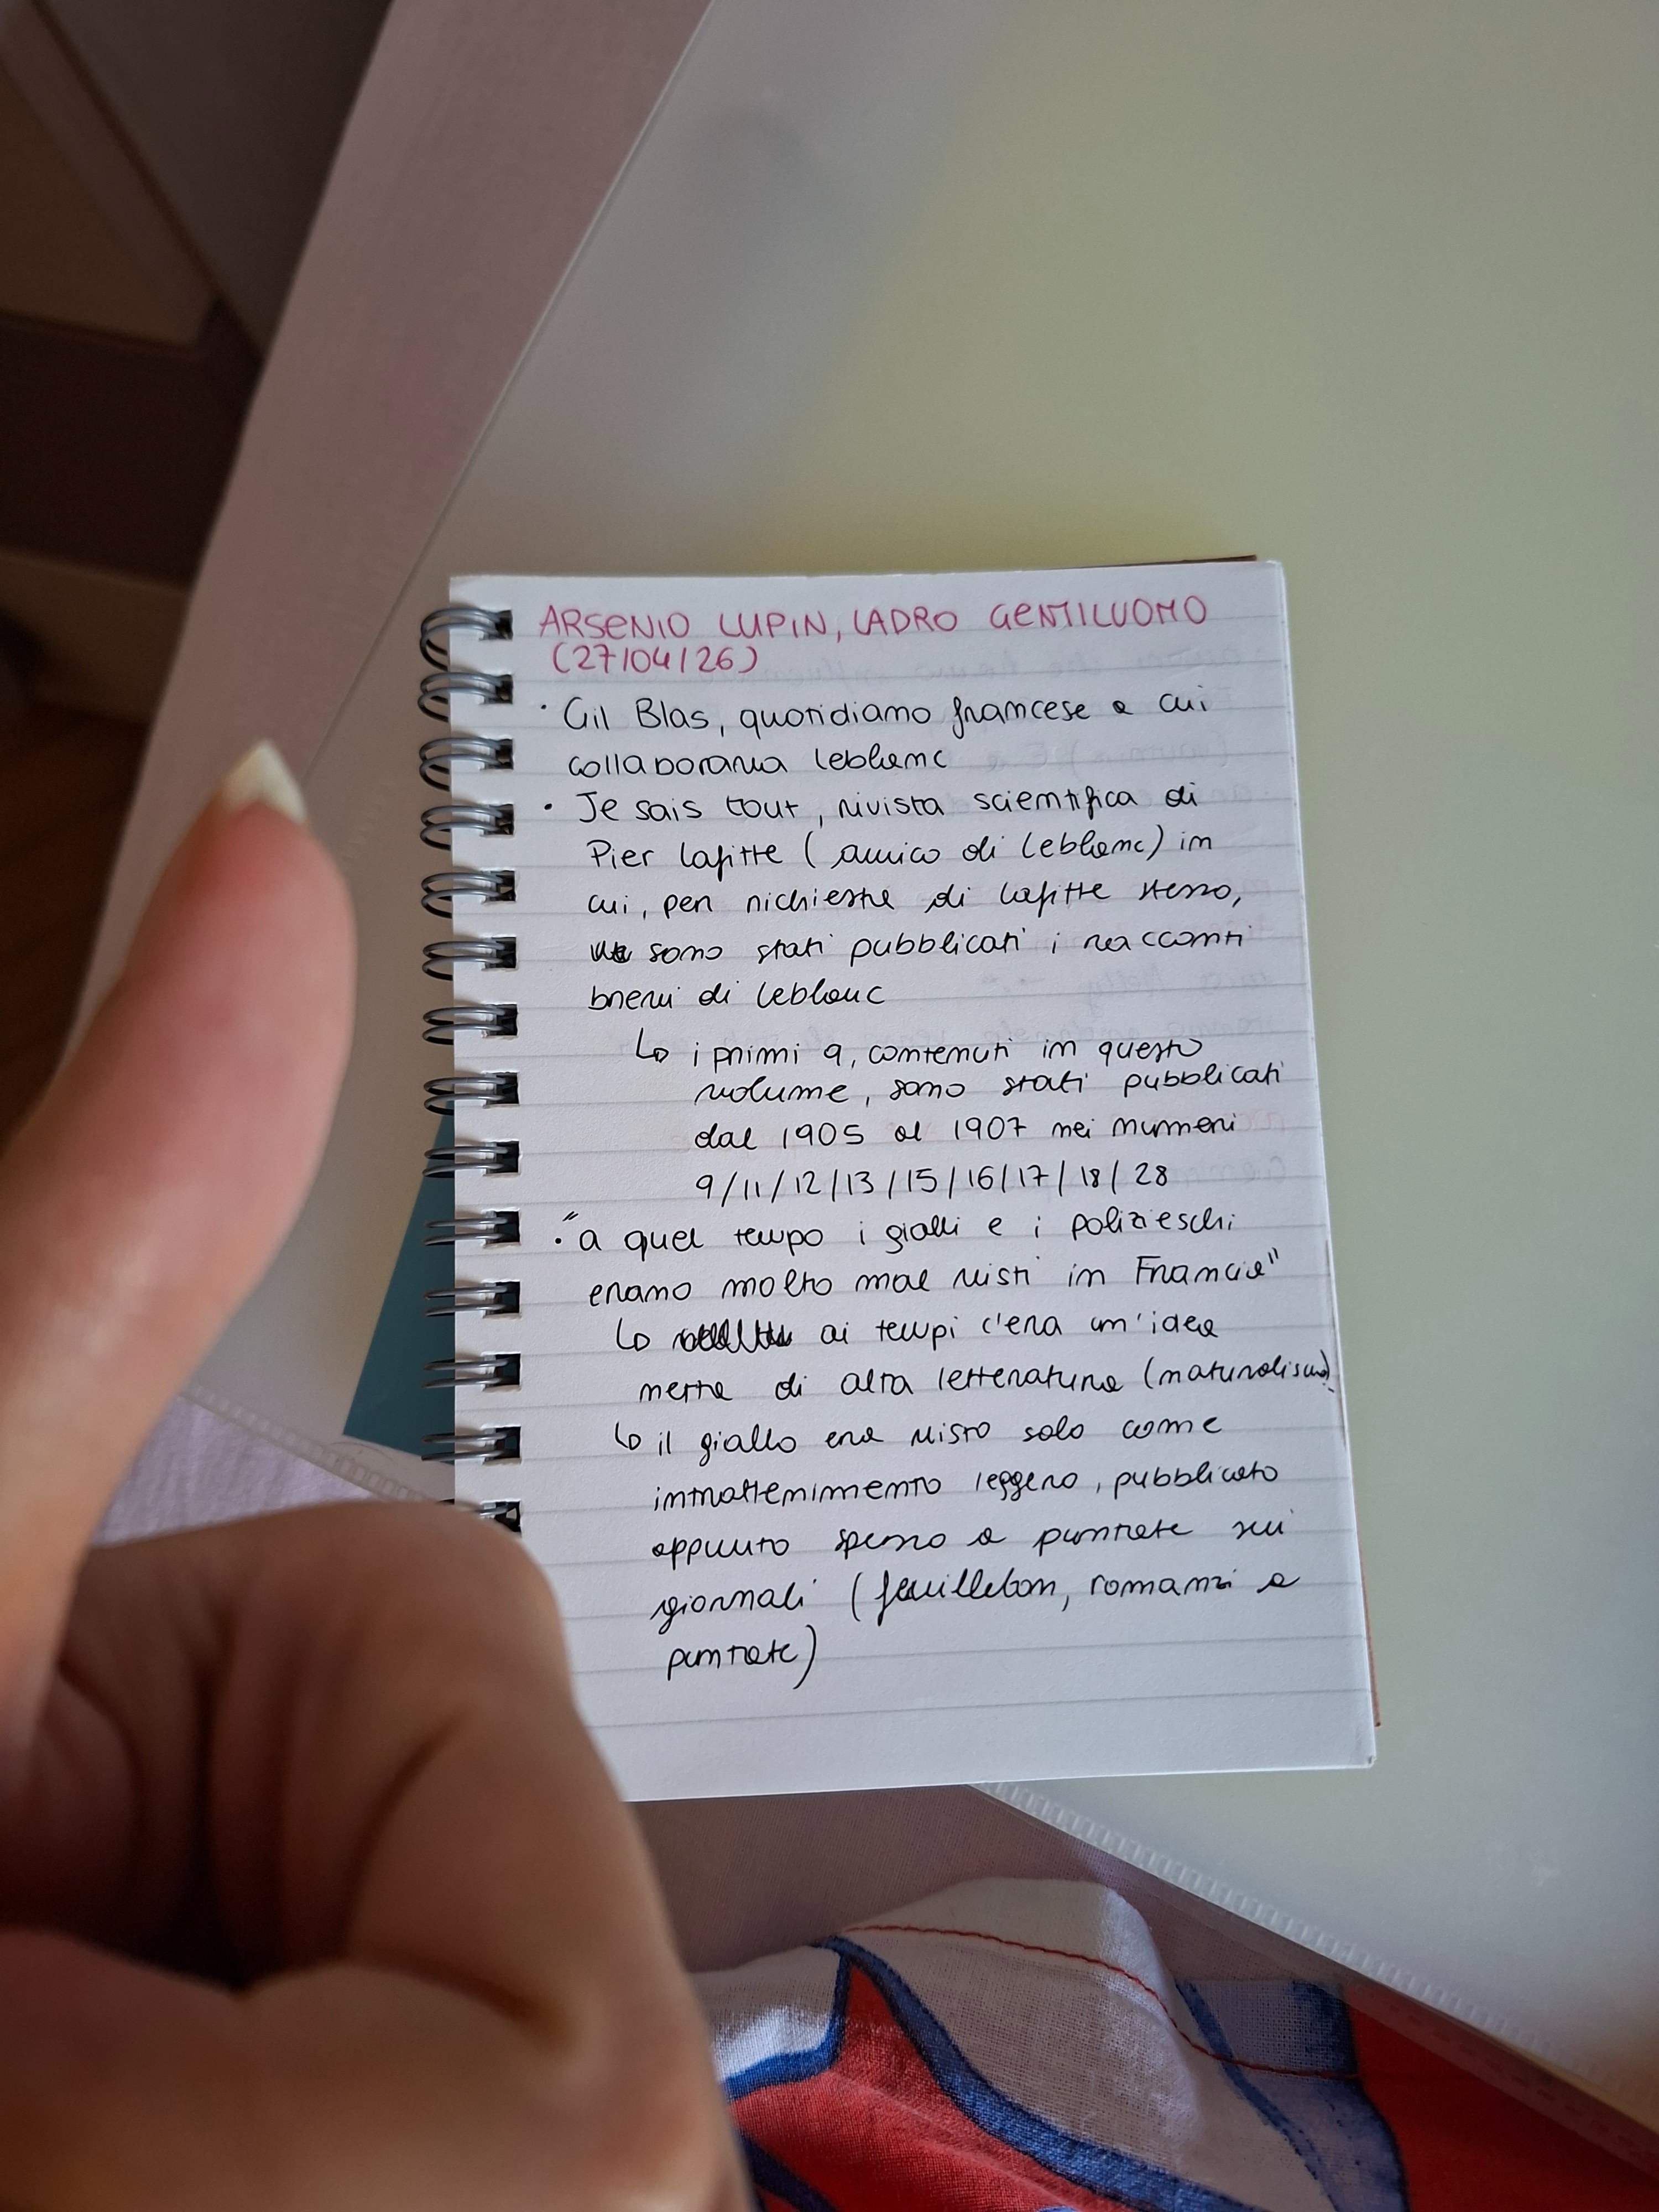 ARSENIO LUPIN, LADRO GENTILUOMO
(27/04/26)
· Gil Blas, quotidiano francese a cui
collaborava Leblanc
· Je sais tout, rivista scientifica di
Pier Lafitte (amico di Leblanc) in
cui, per richiesta di Lafitte stesso,
sono stati pubblicati i racconti
brevi di Leblanc
↳ i primi 9, contenuti in questo
volume, sono stati pubblicati
dal 1905 al 1907 nei numeri
9/11/12/13/15/16/17/18/28
· "a quel tempo i gialli e i polizieschi
erano molto mal visti in Francia"
↳ ai tempi c'era un'idea
netta di alta letteratura (naturalismo)
↳ il giallo era visto solo come
intrattenimento leggero, pubblicato
appunto spesso a puntate sui
giornali (feuilleton, romanzi a
puntate)